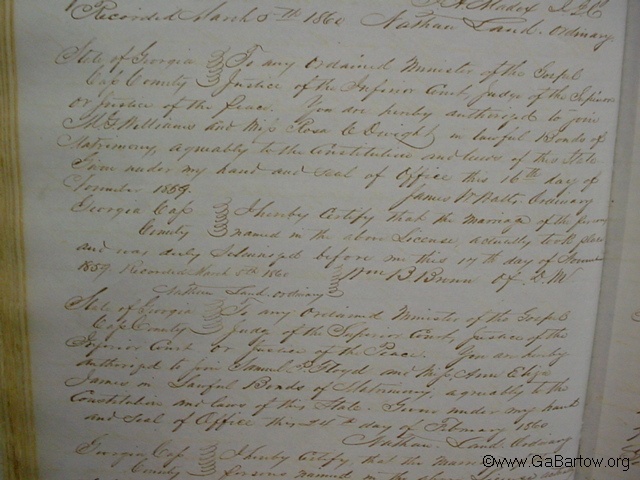 Recorded March 5th 1860 Nathan Land. Ordinary.
State of Georgia To any Ordained Minister of the Gospel
Cass County Justice of the Inferior Court, Judge of the Superior
or Justice of the Peace. You are hereby authorized to join
Williams and Miss Rosa C Dwight in lawful Bonds of
Matrimony, agreeably to the Constitution and laws of this State
Given under my hand and seal of Office this 16th day of
November 1859. James Ordinary
Georgia Cass I hereby Certify that the marriage of the
County named in the above License, actually took place
and was duly before me this 17th day of
1859. Recorded March 5th 1860 Wm B Brown
Nathan Land. Ordinary
State of Georgia To any Ordained Minister of the Gospel
Cass County Judge of the Superior Court, Justice of the
Inferior Court or Justice of the Peace. You are hereby
authorized to join Samuel Floyd and Miss Ann Eliza
James in Lawful Bonds of Matrimony, agreeably to the
Constitution and laws of this State. Given under my hand
and seal of Office this day of February 1860
Nathan Land Ordinary
Georgia Cass I hereby Certify, that the
County persons named in the above
©www.GaBartow.org